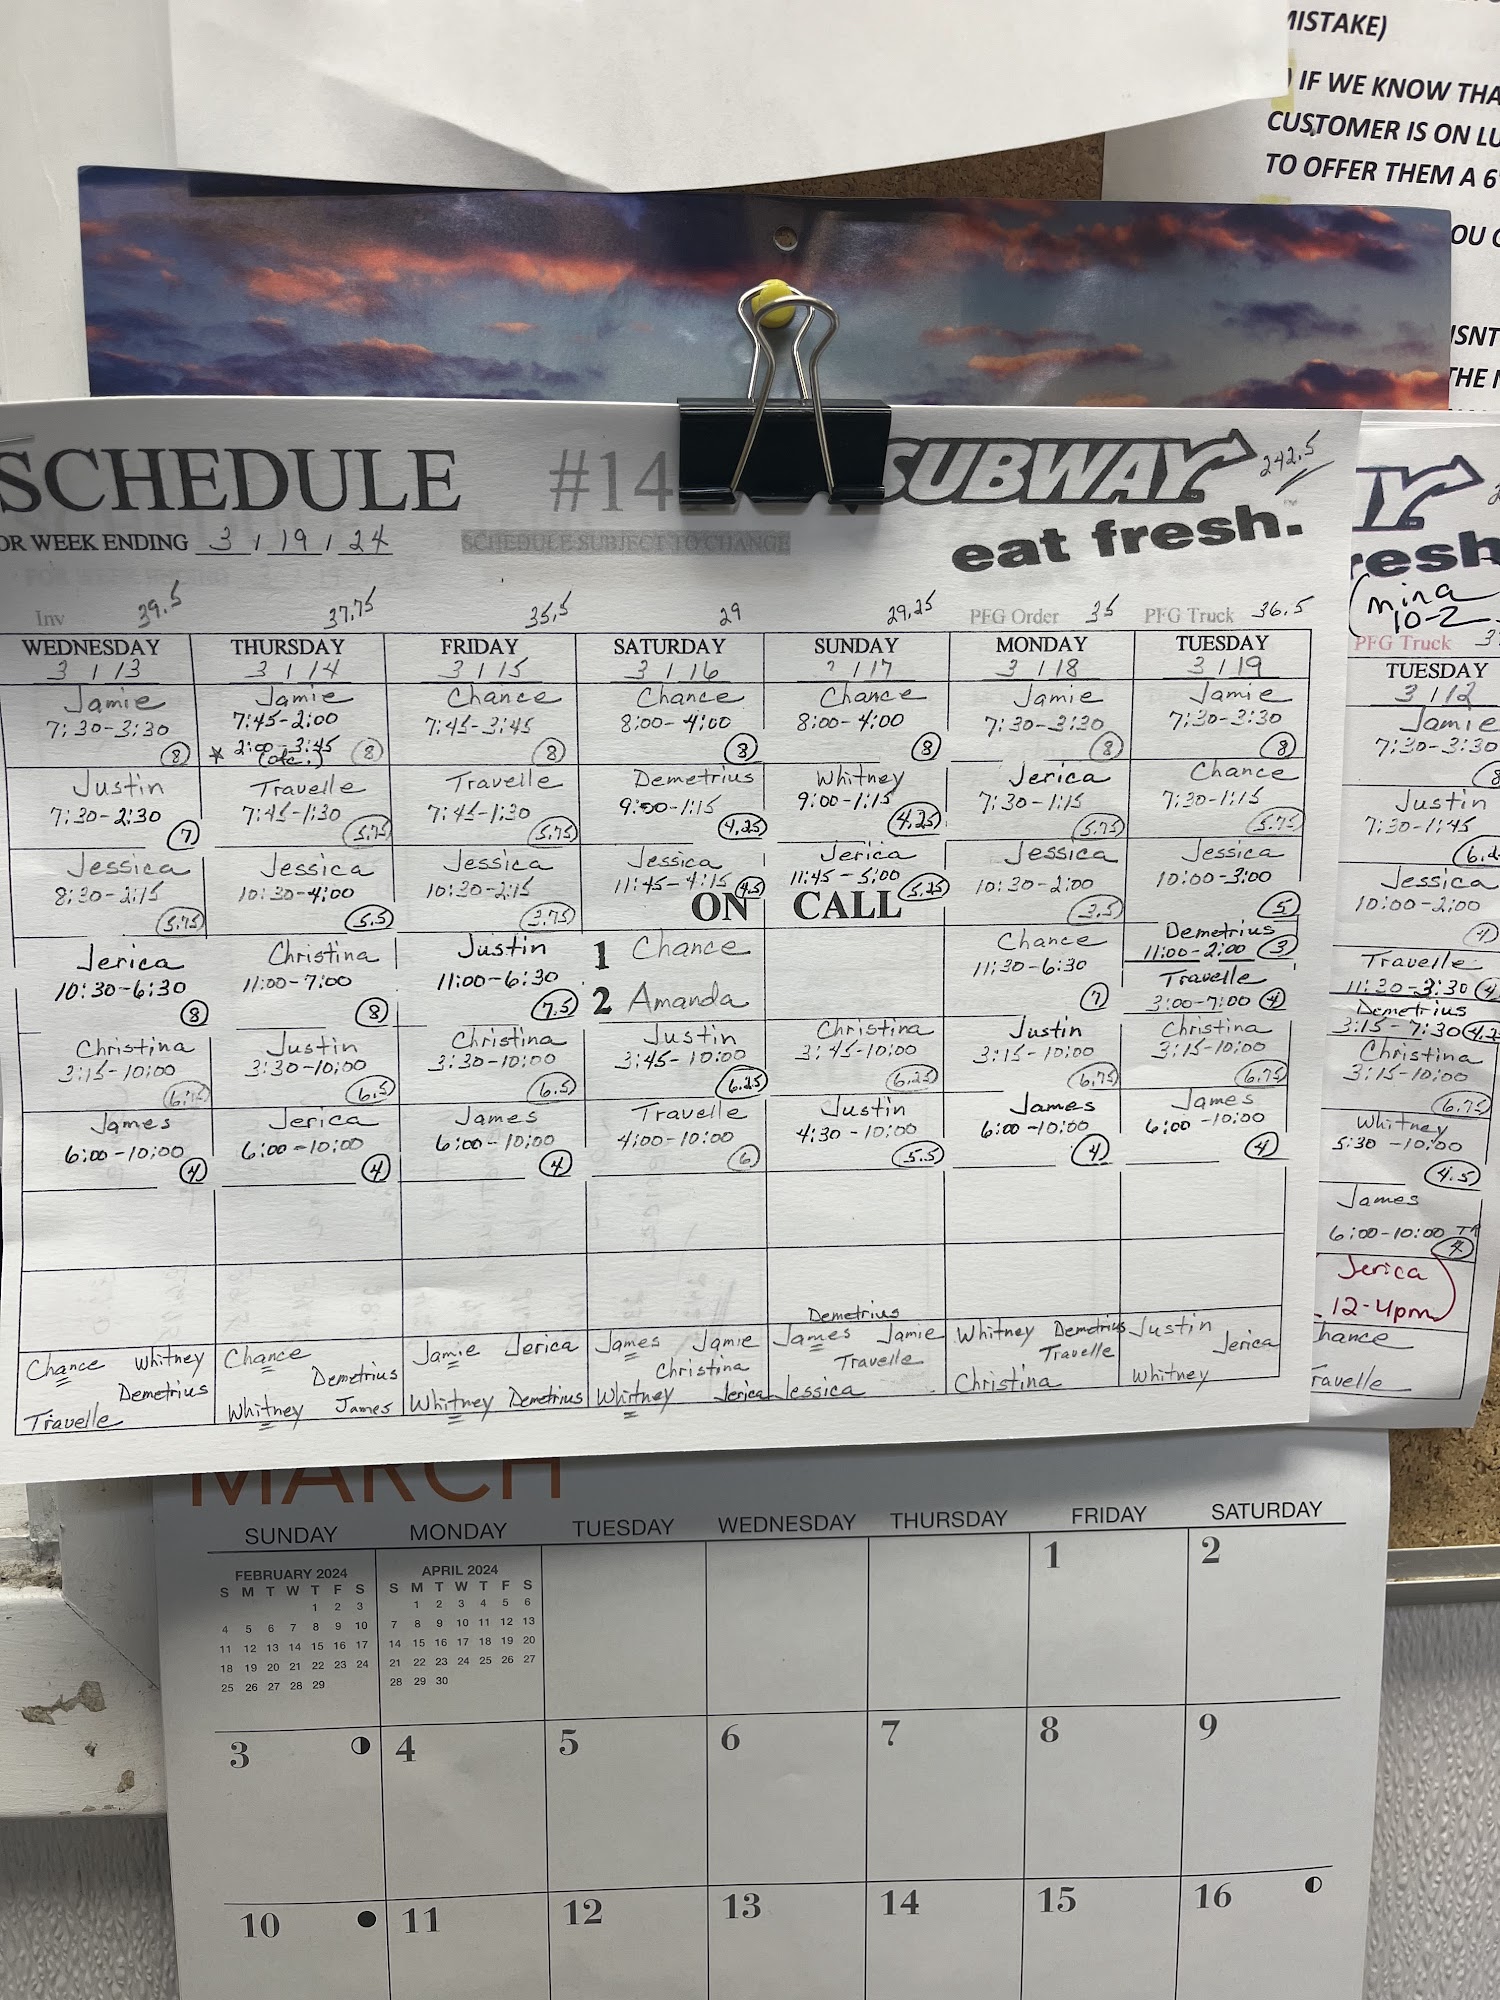 MISTAKE)
IF WE KNOW THA
CUSTOMER IS ON LU
TO OFFER THEM A 6"
OU
ISNT
THE
SCHEDULE #14
SUBWAY
eat fresh.
242.5
OR WEEK ENDING 3 / 19 / 24
SCHEDULE SUBJECT TO CHANGE
Inv 39.5 37.75 35.5 29 29.25 PFG Order 35 PFG Truck 36.5
WEDNESDAY THURSDAY FRIDAY SATURDAY SUNDAY MONDAY TUESDAY
3 / 13 3 / 14 3 / 15 3 / 16 / 17 3 / 18 3 / 19
Jamie Jamie Chance Chance Chance Jamie Jamie
7:30-3:30 7:45-2:00 7:45-3:45 8:00-4:00 8:00-4:00 7:30-3:30 7:30-3:30
* 2:00-3:45
8 8 8 8 8 8 8
Justin Travelle Travelle Demetrius Whitney Jerica Chance
7:30-2:30 7:45-1:30 7:45-1:30 9:00-1:15 9:00-1:15 7:30-1:15 7:30-1:15
7 5.75 5.75 4.25 4.25 5.75 5.75
Jessica Jessica Jessica Jessica Jerica Jessica Jessica
8:30-2:15 10:30-4:00 10:30-2:15 11:45-4:15 11:45-5:00 10:30-2:00 10:00-3:00
5.75 5.5 3.75 4.5 5.25 3.5 5
ON CALL
Jerica Christina Justin 1 Chance Chance Demetrius
10:30-6:30 11:00-7:00 11:00-6:30 11:30-6:30 11:00-2:00 3
8 8 7.5 2 Amanda 7 Travelle
3:00-7:00 4
Christina Justin Christina Justin Christina Justin Christina
3:15-10:00 3:30-10:00 3:30-10:00 3:45-10:00 3:45-10:00 3:15-10:00 3:15-10:00
6.75 6.5 6.5 6.25 6.25 6.75 6.75
James Jerica James Travelle Justin James James
6:00-10:00 6:00-10:00 6:00-10:00 4:00-10:00 4:30-10:00 6:00-10:00 6:00-10:00
4 4 4 6 5.5 4 4
Chance Whitney
Demetrius
Travelle
Chance
Demetrius
Whitney James
Jamie Jerica
Whitney Demetrius
James Jamie
Christina
Whitney Jerica
Demetrius
James Jamie
Travelle
Jessica
Whitney Demetrius
Travelle
Christina
Justin
Jerica
Whitney
resh
(Mina
10-2
PFG Truck
TUESDAY
3 / 12
Jamie
7:30-3:30
Justin
7:30-1:45
Jessica
10:00-2:00
4
Travelle
11:30-3:30
Demetrius
3:15-7:30
Christina
3:15-10:00
6.75
Whitney
5:30-10:00
4.5
James
6:00-10:00
4
Jerica
12-4pm
hance
ravelle
MARCH
SUNDAY MONDAY TUESDAY WEDNESDAY THURSDAY FRIDAY SATURDAY
FEBRUARY 2024
S M T W T F S
1 2 3
4 5 6 7 8 9 10
11 12 13 14 15 16 17
18 19 20 21 22 23 24
25 26 27 28 29
APRIL 2024
S M T W T F S
1 2 3 4 5 6
7 8 9 10 11 12 13
14 15 16 17 18 19 20
21 22 23 24 25 26 27
28 29 30
1 2
3 4 5 6 7 8 9
10 11 12 13 14 15 16